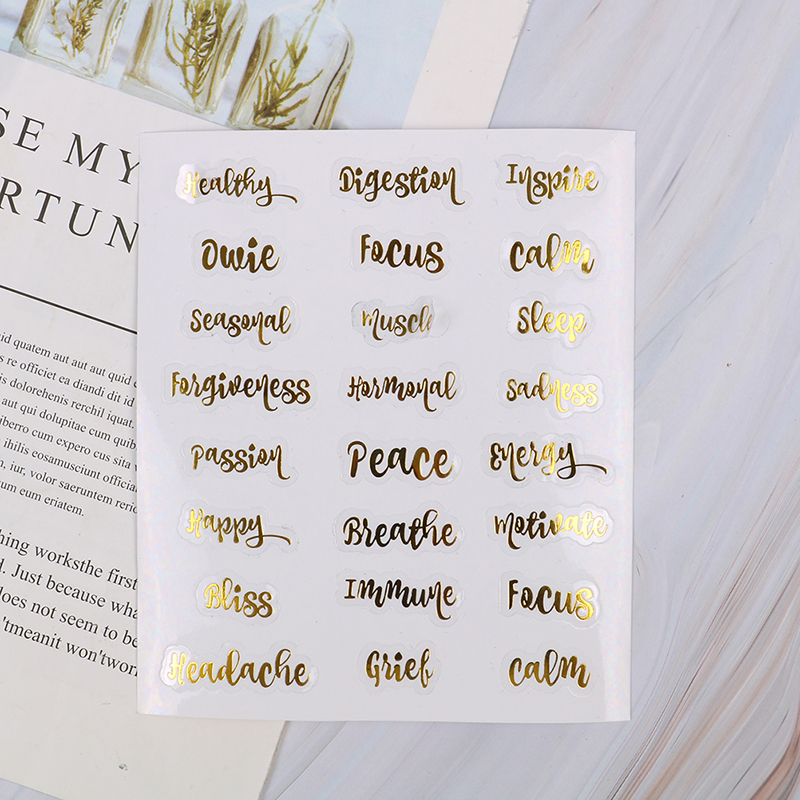 SE MY
RTUN
id quatem aut aut aut quid e
s re officiet ea diandi dit id
dolorehenis rerchil iquat.
aut qui dolupitae cum quib
cum expero cus sitia
ihilis eosamusciunt officia
, iur, volor saeruntem reric
tum eum eriatem.
hing worksthe first
. Just because wha
loes not seem to be
'tmeanit won'twor
Healthy Digestion Inspire
Owie Focus Calm
Seasonal Muscle Sleep
Forgiveness Hormonal Sadness
Passion Peace Energy
Happy Breathe Motivate
Bliss Immune Focus
Headache Grief Calm